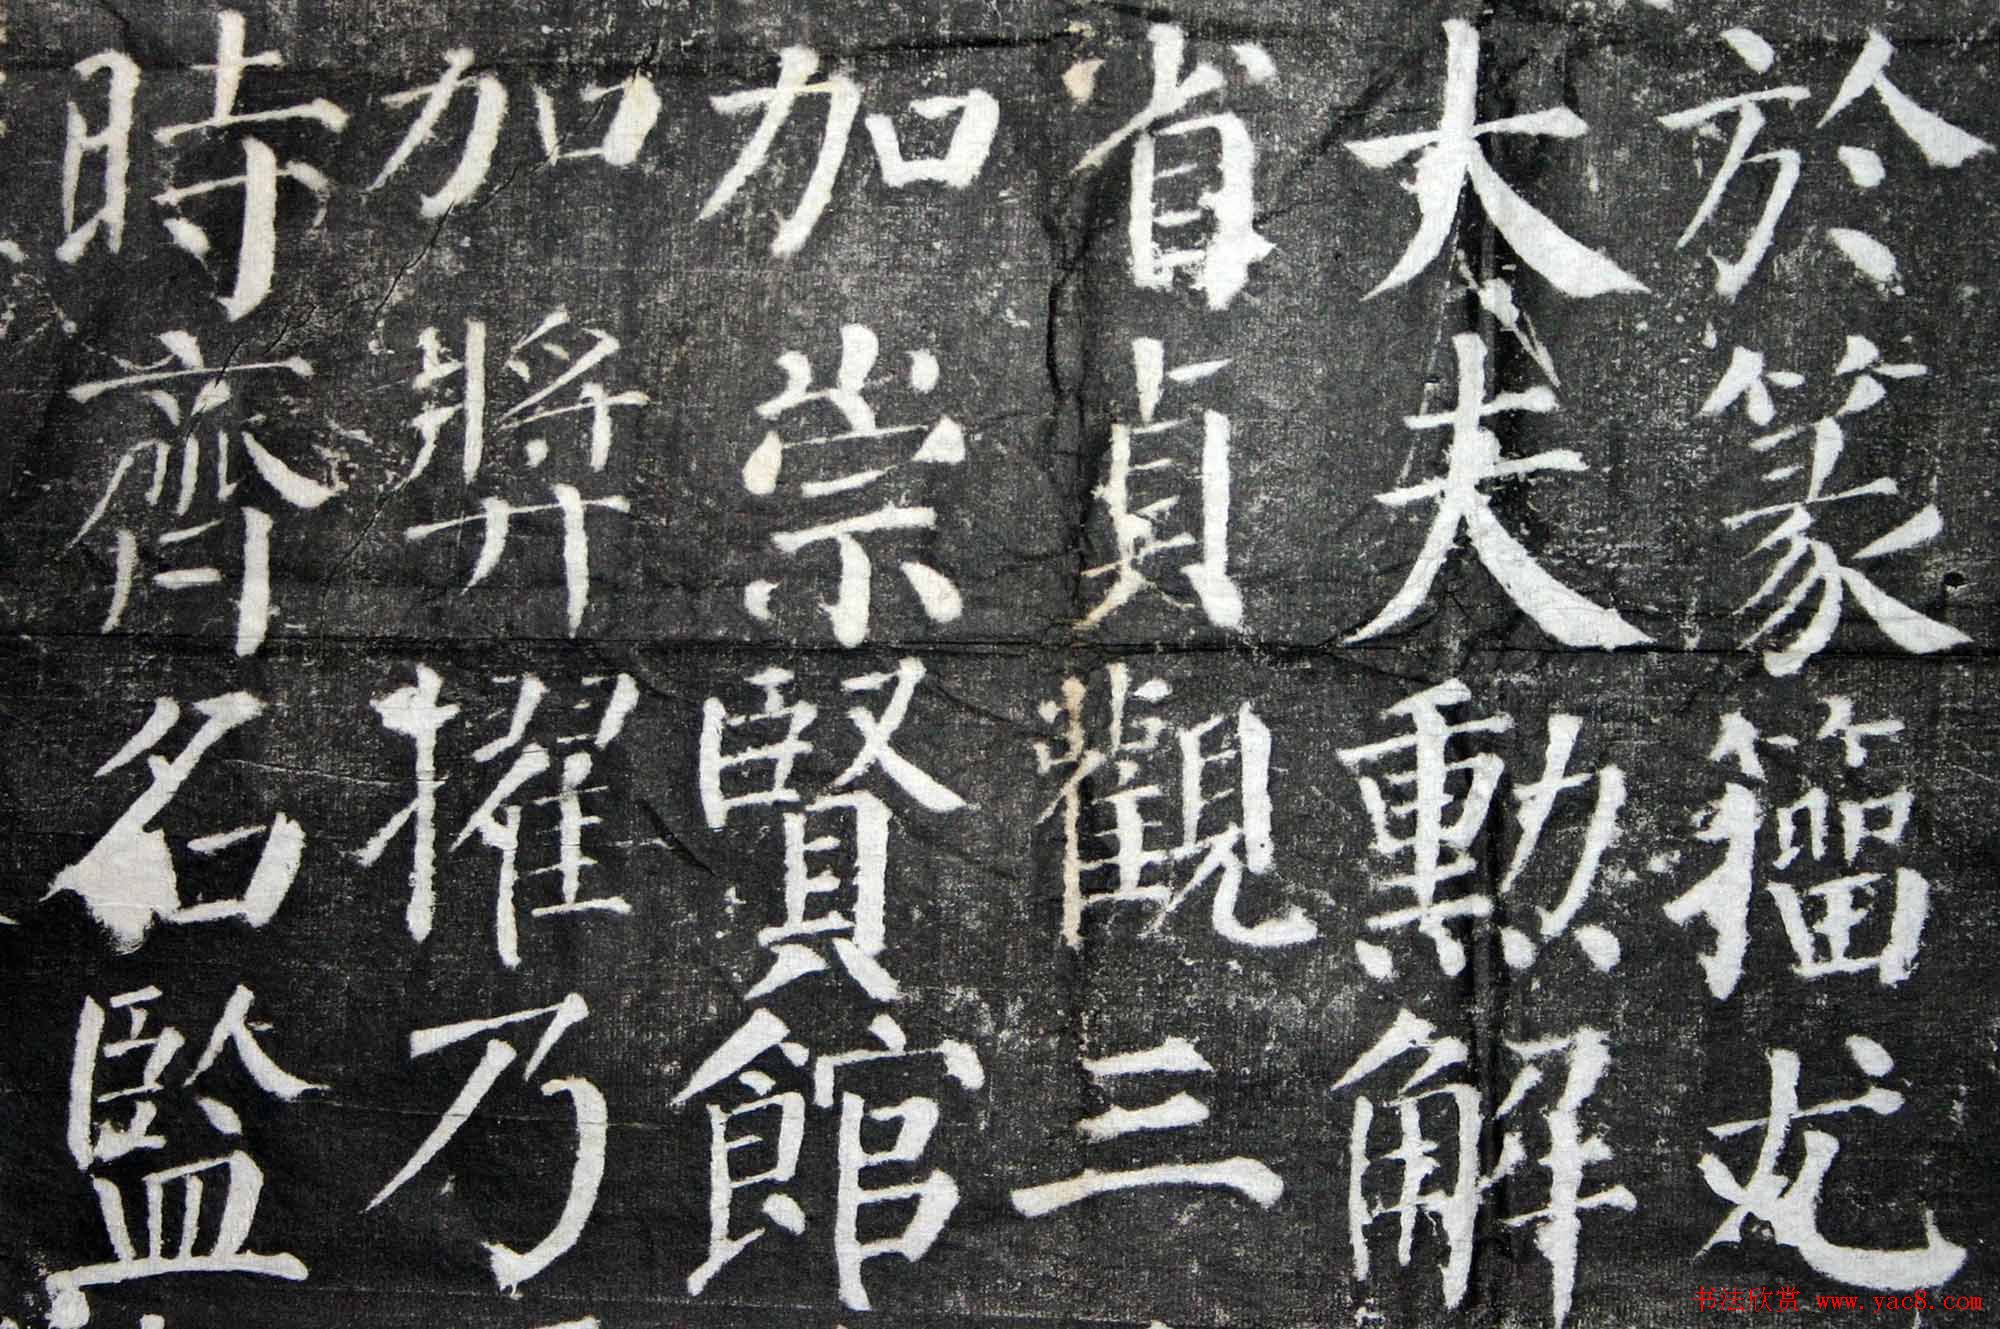 於篆籀尤
大夫勲解
省貞觀三
加崇賢館
加奬擢乃
時齊名監
书法欣赏 www.yac8.com